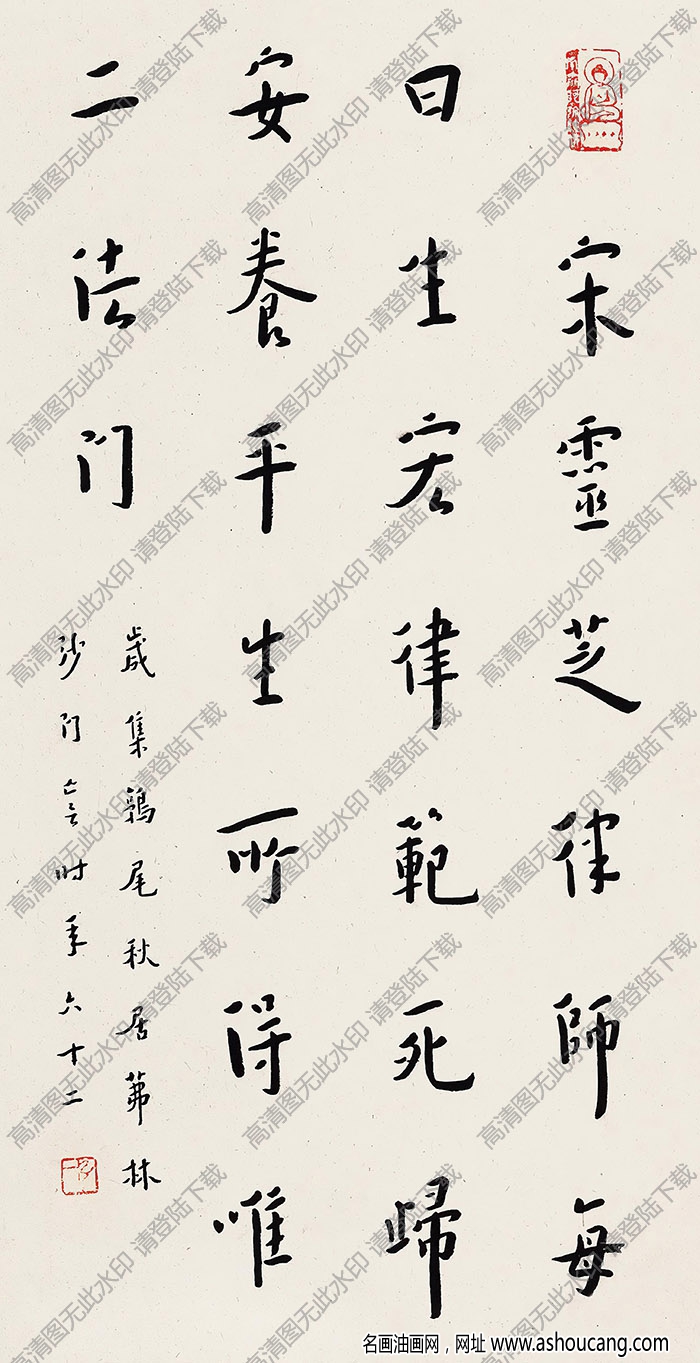 宋靈芝律師每
曰生宏律範死歸
安養平生所得唯
二法门
歳集鶉尾秋居茀林
沙门亡言时年六十二
高清图无此水印 请登陆下载
名画油画网，网址 www.ashoucang.com